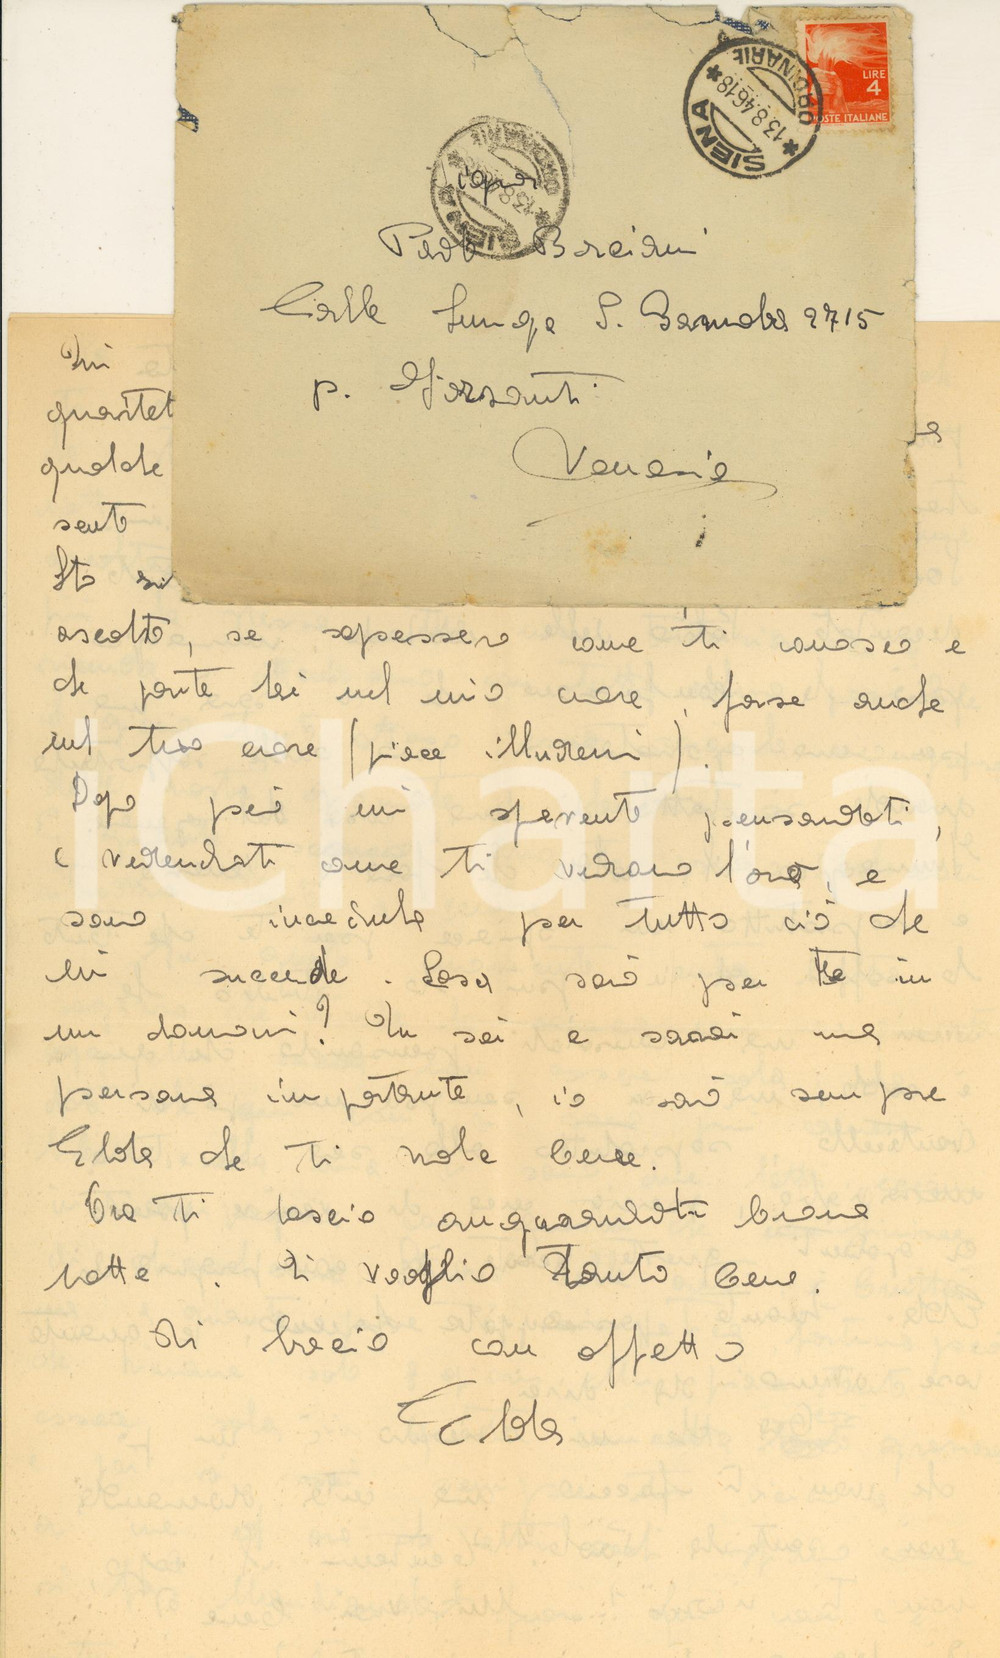 SIENA
ORDINARIE
13.8.46 18
LIRE
4
POSTE ITALIANE
SIENA
Signor
Paolo Borciani
Calle Lunga S. Barnaba 2715
p. Giesanti
Venezia
Mi
quartet
qualche
sento
Sto
ascolto, se sapessero come ti conosco e
che parte hai nel mio cuore, forse anche
nel tuo cuore (piace illudermi).
Dopo però mi spavento pensandoti,
e vedendoti come ti vedrano l'ora, e
sono incredula per tutto ciò che
mi succede. Cosa sarò per te in
un domani? Tu sei e sarai una
persona importante, io sarò sempre
Elda che ti vuole bene.
Ora ti lascio augurandoti buona
notte. Ti voglio tanto bene.
Ti bacio con affetto
Elda
iCharta